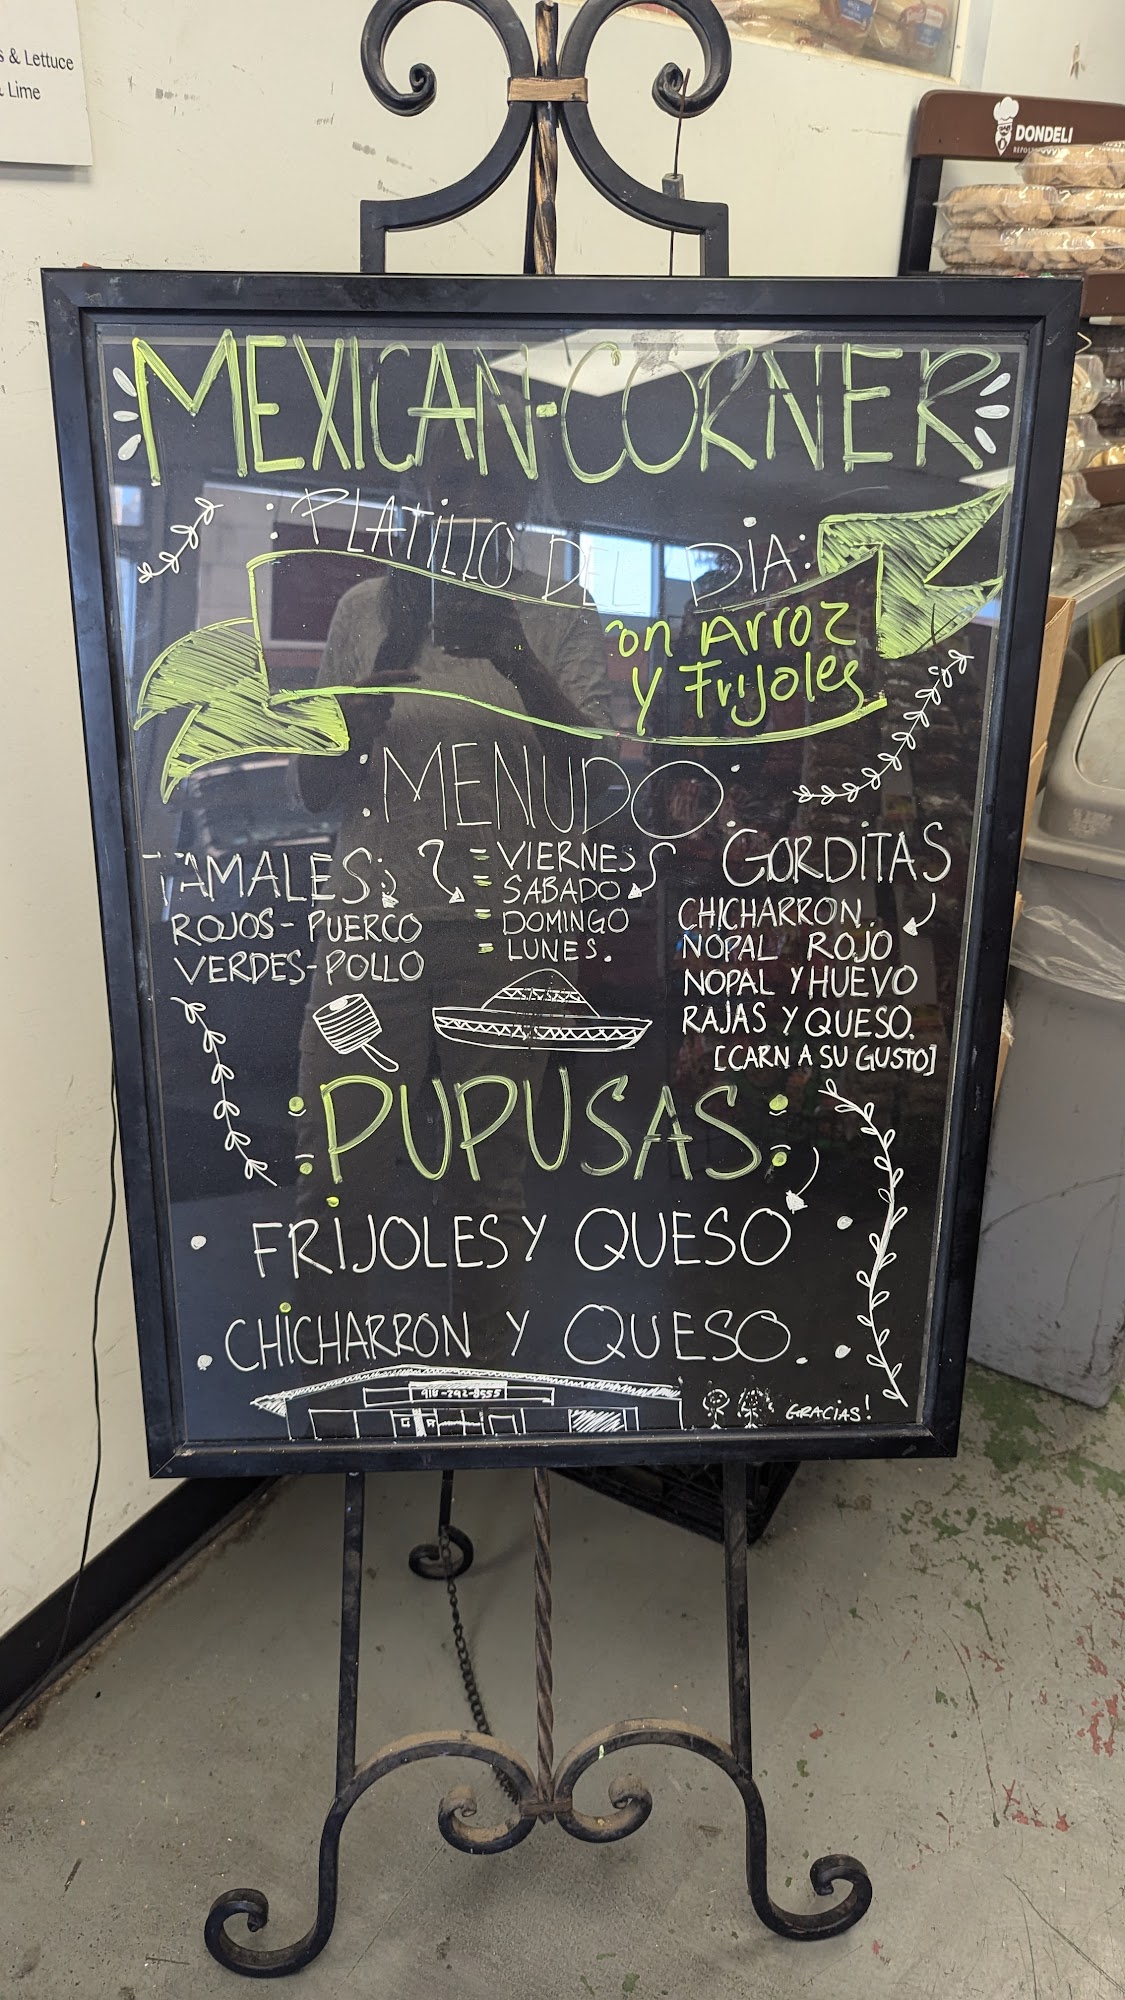 & Lettuce
& Lime
DONDELI
MEXICAN-CORNER
: PLATILLO DEL DIA:
on Arroz
y Frijoles
MENUDO
- VIERNES
- SABADO
- DOMINGO
- LUNES.
TAMALES:
ROJOS- PUERCO
VERDES-POLLO
GORDITAS
CHICHARRON.
NOPAL ROJO
NOPAL Y HUEVO
RAJAS Y QUESO.
[CARN A SU GUSTO]
:PUPUSAS:
. FRIJOLES Y QUESO .
. CHICHARRON Y QUESO. .
GRACIAS!